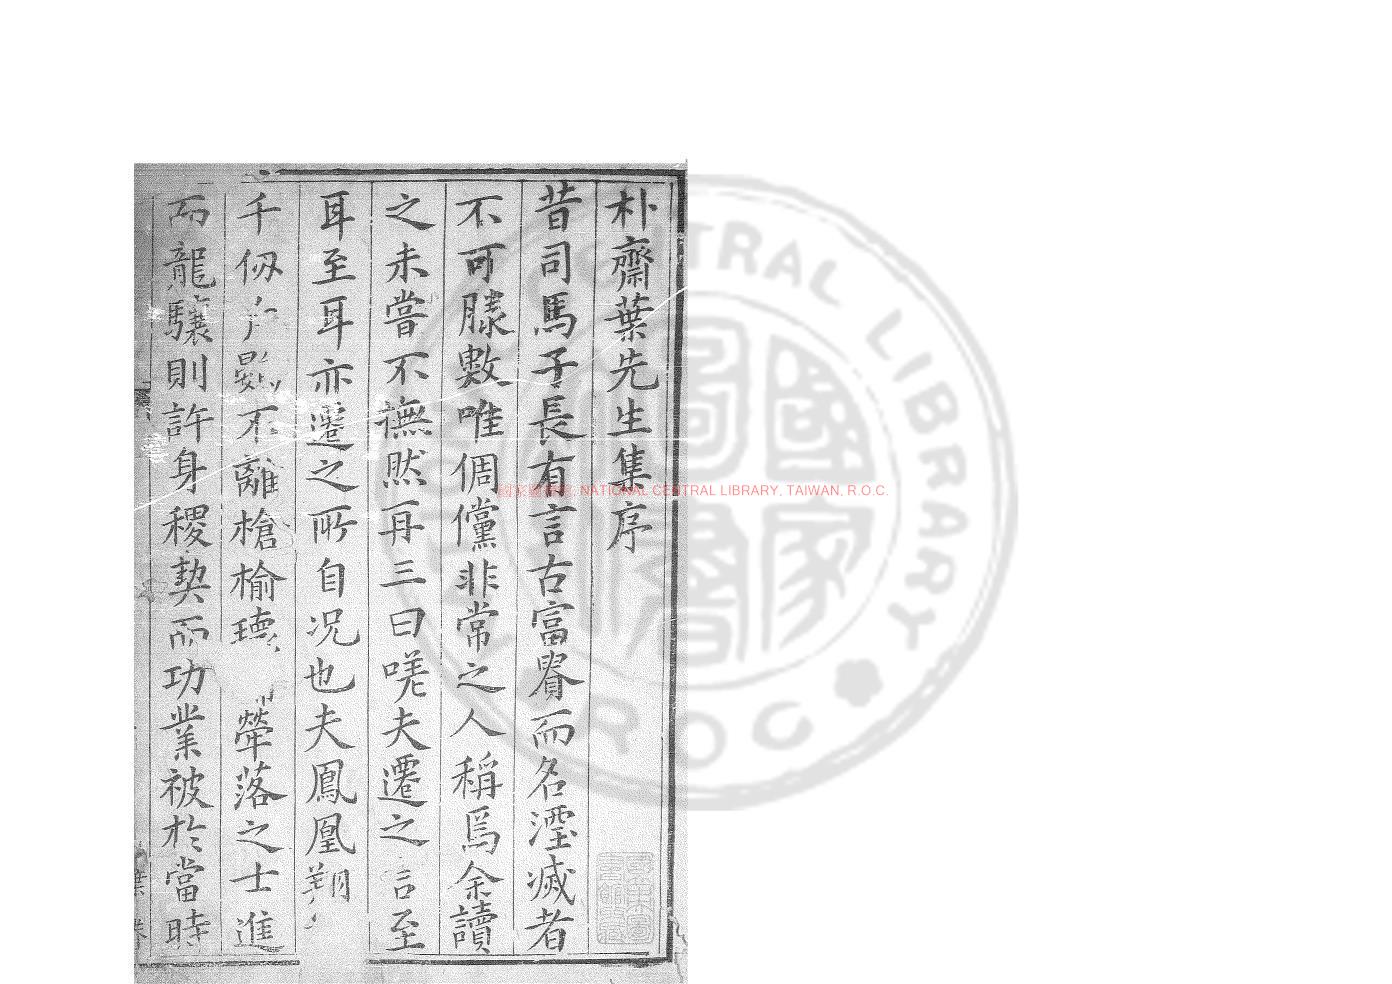 朴齋葉先生集序
昔司馬子長有言古富貴而名湮滅者
不可勝數唯倜儻非常之人稱焉余讀
之未嘗不憮然再三曰嗟夫遷之言至
耳至耳亦遷之所自况也夫鳳凰翔
千仞 不離槍榆 犖落之士進
而龍驤則許身稷契而功業被於當時
國家圖書館, NATIONAL CENTRAL LIBRARY, TAIWAN, R.O.C.
CENTRAL LIBRARY
R.O.C
國家圖書